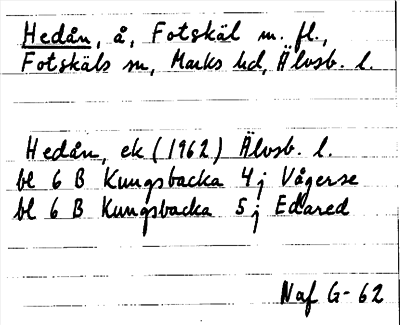 Hedån, å, Fotskäl m. fl.,
Fotskäls sn, Marks hd, Älvsb. l.
Hedån, ek (1962) Älvsb. l.
bl 6 B Kungsbacka 4 j Vågerse
bl 6 B Kungsbacka 5 j Edared
Naf G-62